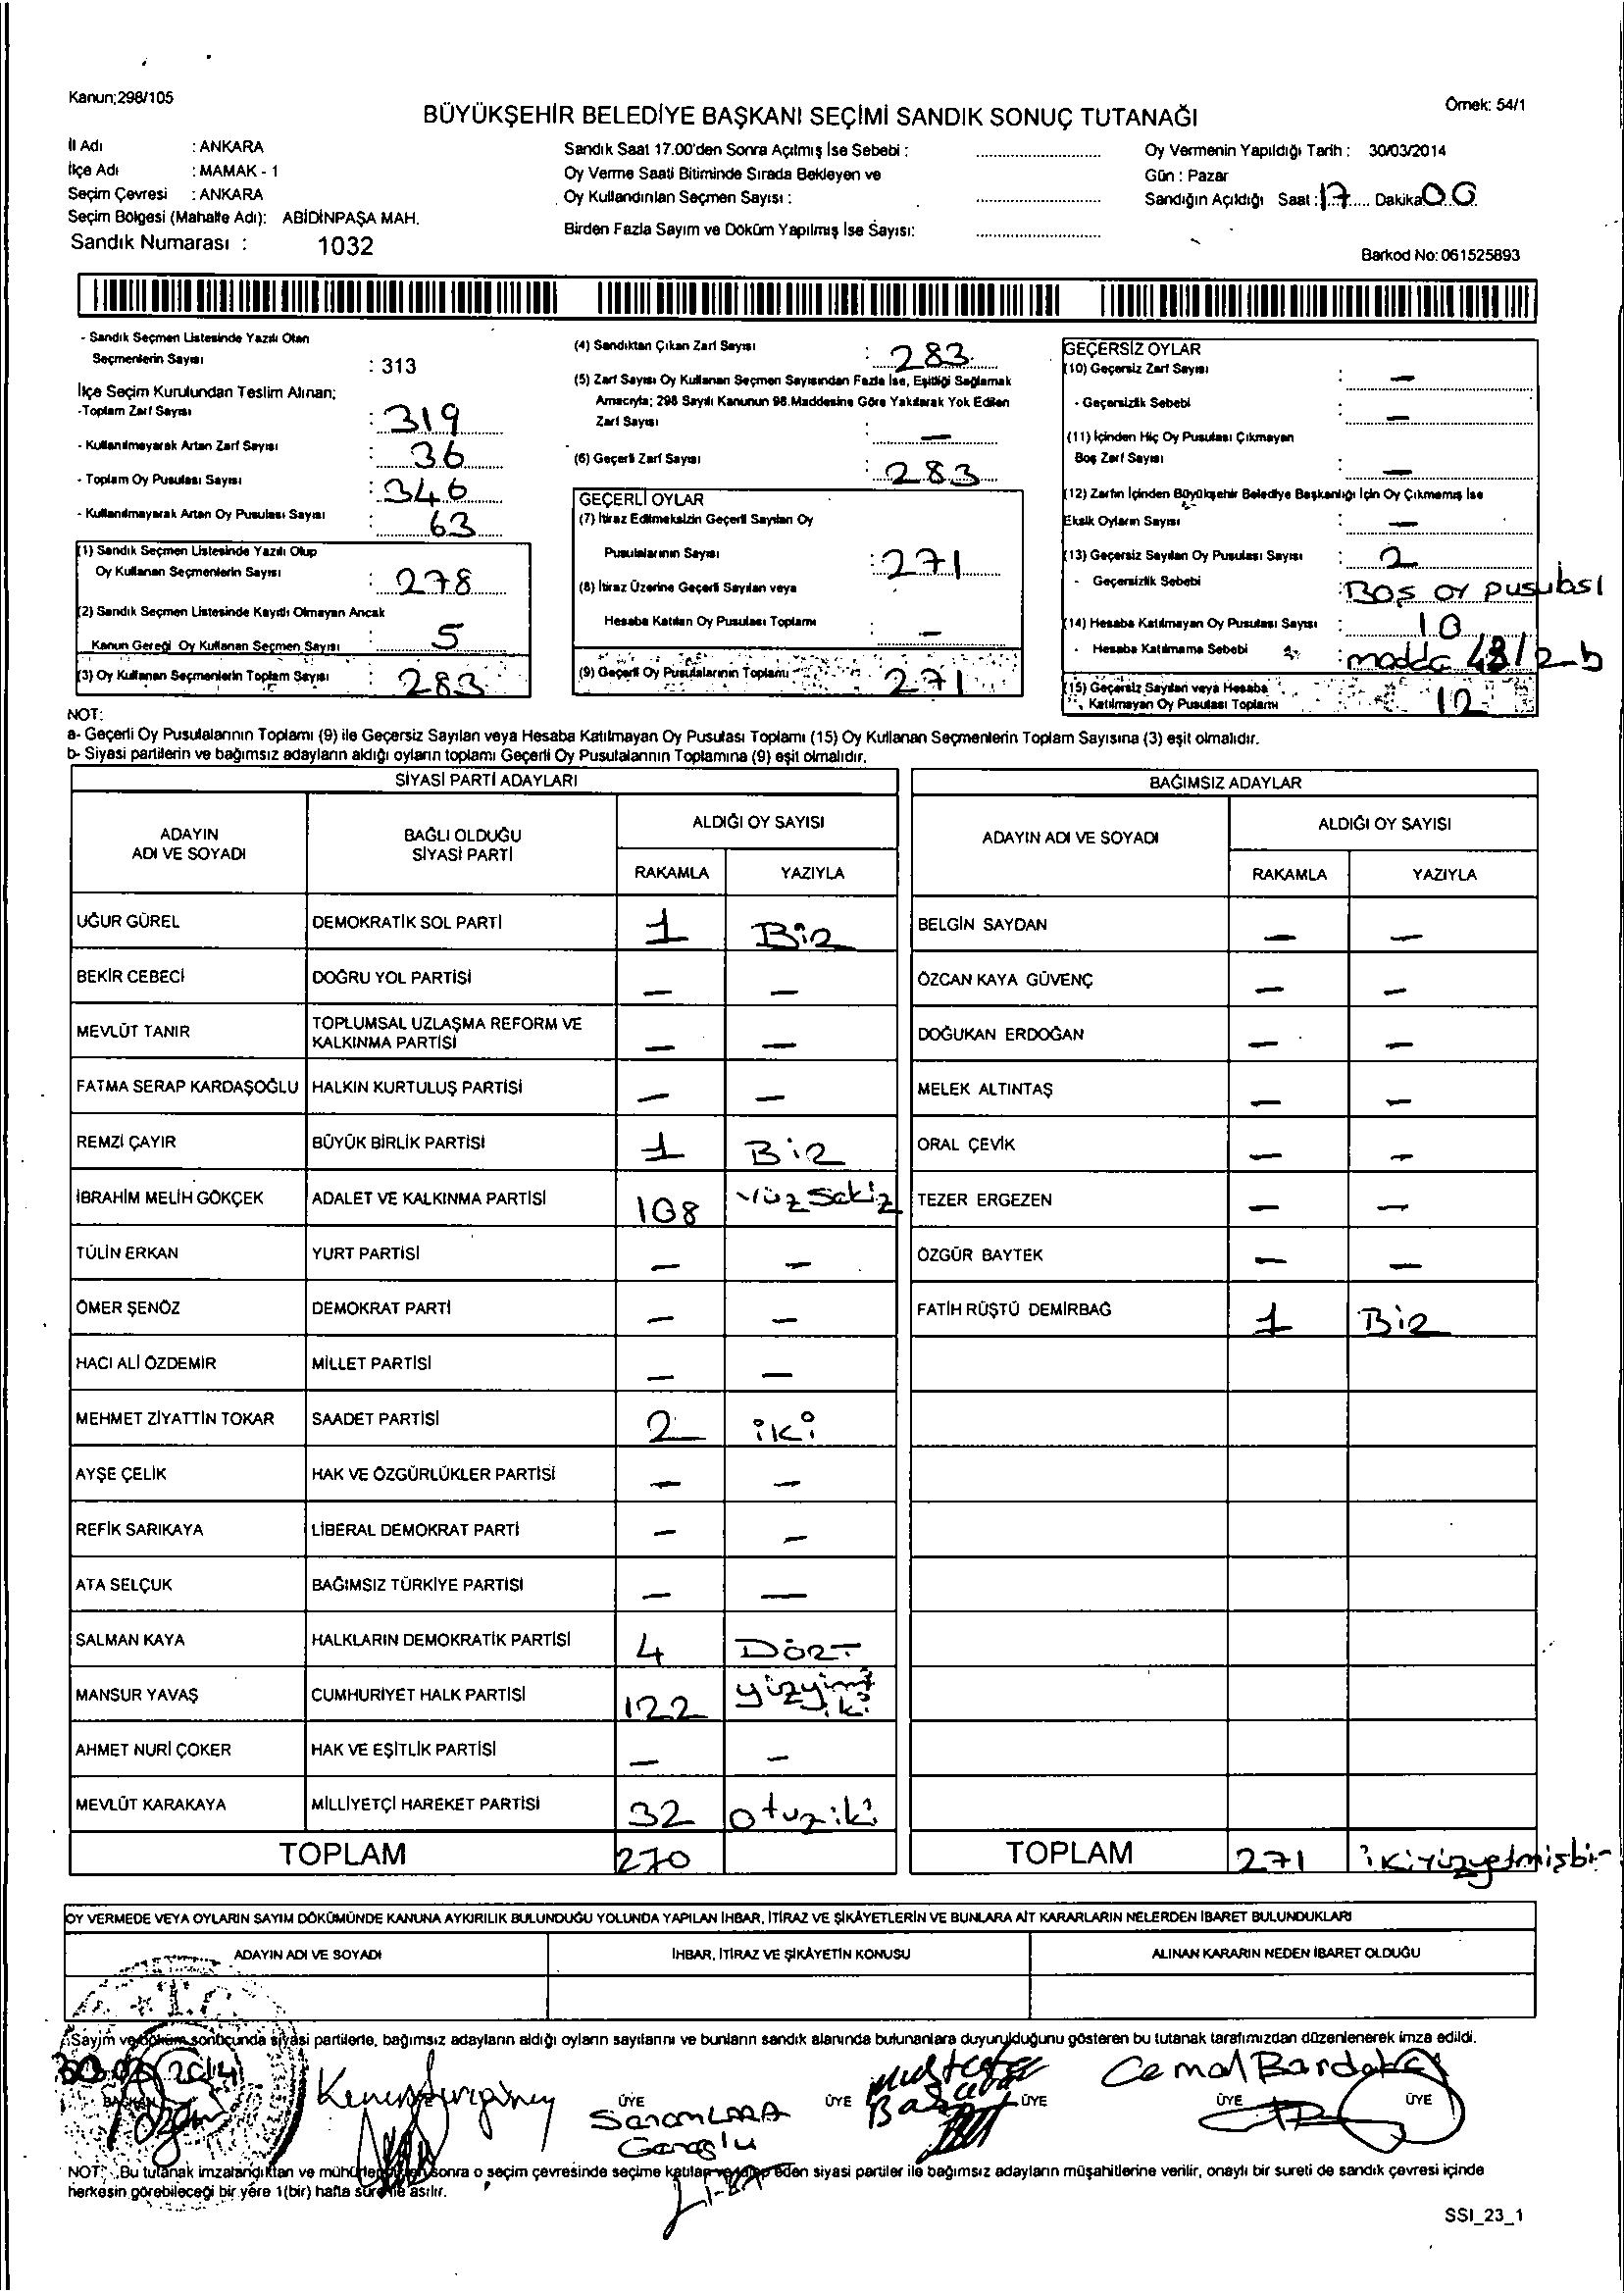 Kanun;298/105
Örnek: 54/1
BÜYÜKŞEHİR BELEDİYE BAŞKANI SEÇİMİ SANDIK SONUÇ TUTANAĞI
İl Adı : ANKARA
İlçe Adı : MAMAK - 1
Seçim Çevresi : ANKARA
Seçim Bölgesi (Mahalle Adı): ABİDİNPAŞA MAH.
Sandık Numarası : 1032
Sandık Saat 17.00'den Sonra Açılmış İse Sebebi :
Oy Verme Saati Bitiminde Sırada Bekleyen ve
Oy Kullandırılan Seçmen Sayısı :
Birden Fazla Sayım ve Döküm Yapılmış İse Sayısı:
Oy Vermenin Yapıldığı Tarih : 30/03/2014
Gün : Pazar
Sandığın Açıldığı Saat : 17 Dakika 00
Barkod No: 061525893
- Sandık Seçmen Listesinde Yazılı Olan
Seçmenlerin Sayısı : 313
İlçe Seçim Kurulundan Teslim Alınan;
-Toplam Zarf Sayısı : 319
- Kullanılmayarak Artan Zarf Sayısı : 36
- Toplam Oy Pusulası Sayısı : 346
- Kullanılmayarak Artan Oy Pusulası Sayısı : 63
(1) Sandık Seçmen Listesinde Yazılı Olup
Oy Kullanan Seçmenlerin Sayısı : 278
(2) Sandık Seçmen Listesinde Kayıtlı Olmayan Ancak
Kanun Gereği Oy Kullanan Seçmen Sayısı : 5
(3) Oy Kullanan Seçmenlerin Toplam Sayısı : 283
(4) Sandıktan Çıkan Zarf Sayısı : 283
(5) Zarf Sayısı Oy Kullanan Seçmen Sayısından Fazla İse, Eşitliği Sağlamak
Amacıyla; 298 Sayılı Kanunun 98.Maddesine Göre Yakılarak Yok Edilen
Zarf Sayısı : —
(6) Geçerli Zarf Sayısı : 283
GEÇERLİ OYLAR
(7) İtiraz Edilmeksizin Geçerli Sayılan Oy
Pusulalarının Sayısı : 271
(8) İtiraz Üzerine Geçerli Sayılan veya
Hesaba Katılan Oy Pusulası Toplamı : —
(9) Geçerli Oy Pusulalarının Toplamı : 271
GEÇERSİZ OYLAR
(10) Geçersiz Zarf Sayısı : —
- Geçersizlik Sebebi : —
(11) İçinden Hiç Oy Pusulası Çıkmayan
Boş Zarf Sayısı : —
(12) Zarfın İçinden Büyükşehir Belediye Başkanlığı İçin Oy Çıkmamış İse
Eksik Oyların Sayısı : —
(13) Geçersiz Sayılan Oy Pusulası Sayısı : 2
- Geçersizlik Sebebi : Boş oy pusulası
(14) Hesaba Katılmayan Oy Pusulası Sayısı : 10
- Hesaba Katılmama Sebebi : madde 48/2-b
(15) Geçersiz Sayılan veya Hesaba
Katılmayan Oy Pusulası Toplamı : 12
NOT:
a- Geçerli Oy Pusulalarının Toplamı (9) ile Geçersiz Sayılan veya Hesaba Katılmayan Oy Pusulası Toplamı (15) Oy Kullanan Seçmenlerin Toplam Sayısına (3) eşit olmalıdır.
b- Siyasi partilerin ve bağımsız adayların aldığı oyların toplamı Geçerli Oy Pusulalarının Toplamına (9) eşit olmalıdır.
SİYASİ PARTİ ADAYLARI
ADAYIN ADI VE SOYADI BAĞLI OLDUĞU SİYASİ PARTİ ALDIĞI OY SAYISI
RAKAMLA YAZIYLA
UĞUR GÜREL DEMOKRATİK SOL PARTİ 1 Bir
BEKİR CEBECİ DOĞRU YOL PARTİSİ — —
MEVLÜT TANIR TOPLUMSAL UZLAŞMA REFORM VE KALKINMA PARTİSİ — —
FATMA SERAP KARDAŞOĞLU HALKIN KURTULUŞ PARTİSİ — —
REMZİ ÇAYIR BÜYÜK BİRLİK PARTİSİ 1 Bir
İBRAHİM MELİH GÖKÇEK ADALET VE KALKINMA PARTİSİ 108 yüz sekiz
TÜLİN ERKAN YURT PARTİSİ — —
ÖMER ŞENÖZ DEMOKRAT PARTİ — —
HACI ALİ ÖZDEMİR MİLLET PARTİSİ — —
MEHMET ZİYATTİN TOKAR SAADET PARTİSİ 2 iki
AYŞE ÇELİK HAK VE ÖZGÜRLÜKLER PARTİSİ — —
REFİK SARIKAYA LİBERAL DEMOKRAT PARTİ — —
ATA SELÇUK BAĞIMSIZ TÜRKİYE PARTİSİ — —
SALMAN KAYA HALKLARIN DEMOKRATİK PARTİSİ 4 Dört
MANSUR YAVAŞ CUMHURİYET HALK PARTİSİ 122 yüzyirmi iki
AHMET NURİ ÇOKER HAK VE EŞİTLİK PARTİSİ — —
MEVLÜT KARAKAYA MİLLİYETÇİ HAREKET PARTİSİ 32 otuziki
TOPLAM 270
BAĞIMSIZ ADAYLAR
ADAYIN ADI VE SOYADI ALDIĞI OY SAYISI
RAKAMLA YAZIYLA
BELGİN SAYDAN — —
ÖZCAN KAYA GÜVENÇ — —
DOĞUKAN ERDOĞAN — —
MELEK ALTINTAŞ — —
ORAL ÇEVİK — —
TEZER ERGEZEN — —
ÖZGÜR BAYTEK — —
FATİH RÜŞTÜ DEMİRBAĞ 1 Bir
TOPLAM 271 ikiyüzyetmişbir
OY VERMEDE VEYA OYLARIN SAYIM DÖKÜMÜNDE KANUNA AYKIRILIK BULUNDUĞU YOLUNDA YAPILAN İHBAR, İTİRAZ VE ŞİKÂYETLERİN VE BUNLARA AİT KARARLARIN NELERDEN İBARET BULUNDUKLARI
ADAYIN ADI VE SOYADI İHBAR, İTİRAZ VE ŞİKÂYETİN KONUSU ALINAN KARARIN NEDEN İBARET OLDUĞU
Sayım ve döküm sonucunda siyasi partilerle, bağımsız adayların aldığı oyların sayılarını ve bunların sandık alanında bulunanlara duyurulduğunu gösteren bu tutanak tarafımızdan düzenlenerek imza edildi.
30.03.2014
Mustafa
Cemal Bardakçı
BAŞKAN ÜYE ÜYE ÜYE ÜYE ÜYE
NOT: Bu tutanak imzalandıktan ve mühürlendikten sonra o seçim çevresinde seçime katılan eden siyasi partiler ile bağımsız adayların müşahitlerine verilir, onaylı bir sureti de sandık çevresi içinde
herkesin görebileceği bir yere 1(bir) hafta süre ile asılır.
SSI_23_1